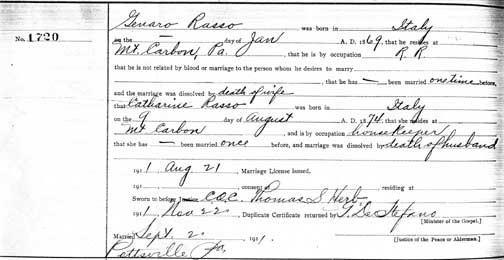 Genaro Rasso was born in Italy
No. 1720
on the — day of Jan A. D. 1869, that he resides at
Mt. Carbon, Pa., that he is by occupation R R
that he is not related by blood or marriage to the person whom he desires to marry
, that he has — been married one time before,
and the marriage was dissolved by death of wife
that Catharine Rasso was born in Italy
on the 9 day of August A. D. 1874, that she resides at
Mt Carbon, and is by occupation housekeeper
that she has — been married once before, and marriage was dissolved by death of husband
1911 Aug 21, Marriage License issued,
191, consent of residing at
Sworn to before C.O.C. Thomas S Herb
1911 Nov 22, Duplicate Certificate returned by De Stefano
[Minister of the Gospel.]
Married Sept. 2, 1911.
[Justice of the Peace or Alderman.]
Pottsville Pa.